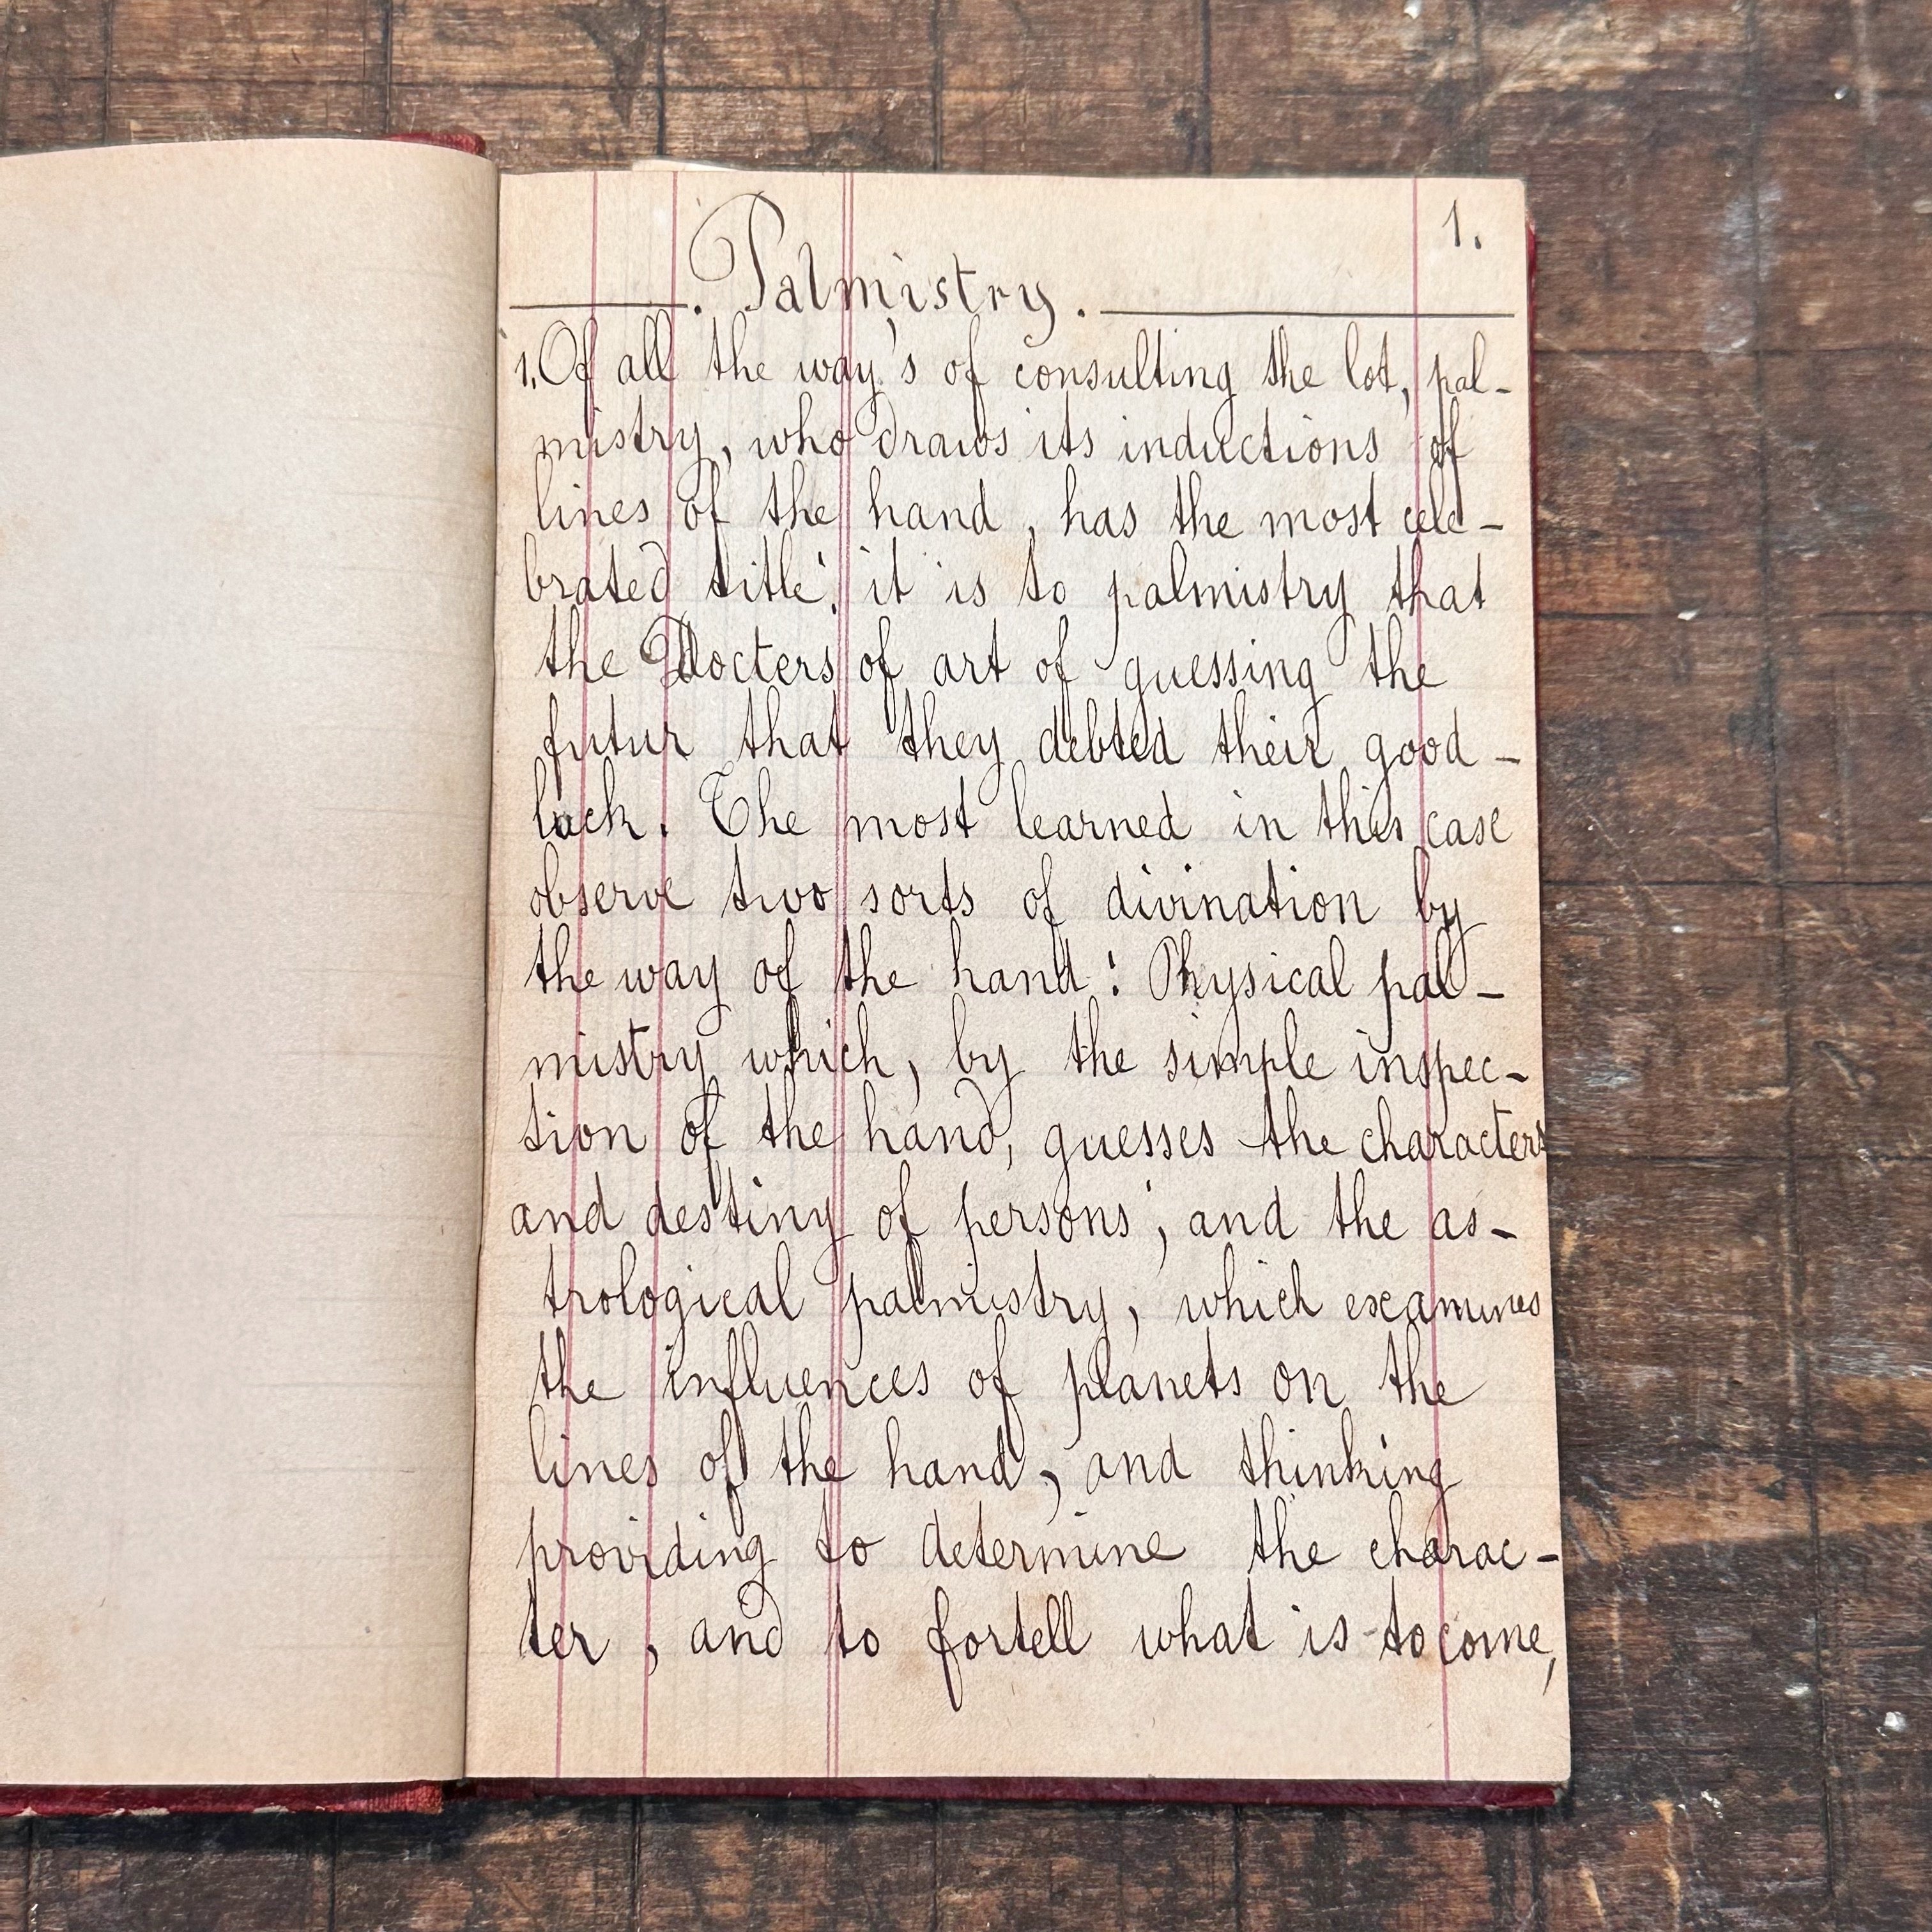 1.
. Palmistry .
1. Of all the way's of consulting the lot, pal-
mistry, who draws its inductions of
lines of the hand, has the most cele-
brated title; it is to palmistry that
the Docters of art of guessing the
futur that they debted their good-
luck. The most learned in this case
observe two sorts of divination by
the way of the hand: Physical pal-
mistry which, by the simple inspec-
tion of the hand, guesses the characters
and destiny of persons; and the as-
trological palmistry, which examines
the influences of planets on the
lines of the hand, and thinking
providing to determine the charac-
ter, and to fortell what is to come,